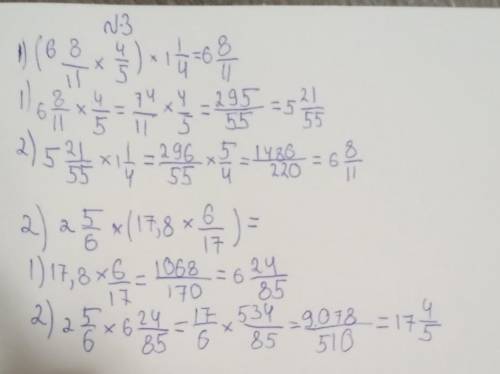 №3
1) (6 8/11 × 4/5) × 1 1/4 = 6 8/11
1) 6 8/11 × 4/5 = 74/11 × 4/5 = 295/55 = 5 21/55
2) 5 21/55 × 1 1/4 = 296/55 × 5/4 = 1486/220 = 6 8/11
2) 2 5/6 × (17,8 × 6/17) =
1) 17,8 × 6/17 = 1068/170 = 6 24/85
2) 2 5/6 × 6 24/85 = 17/6 × 534/85 = 9078/510 = 17 4/5